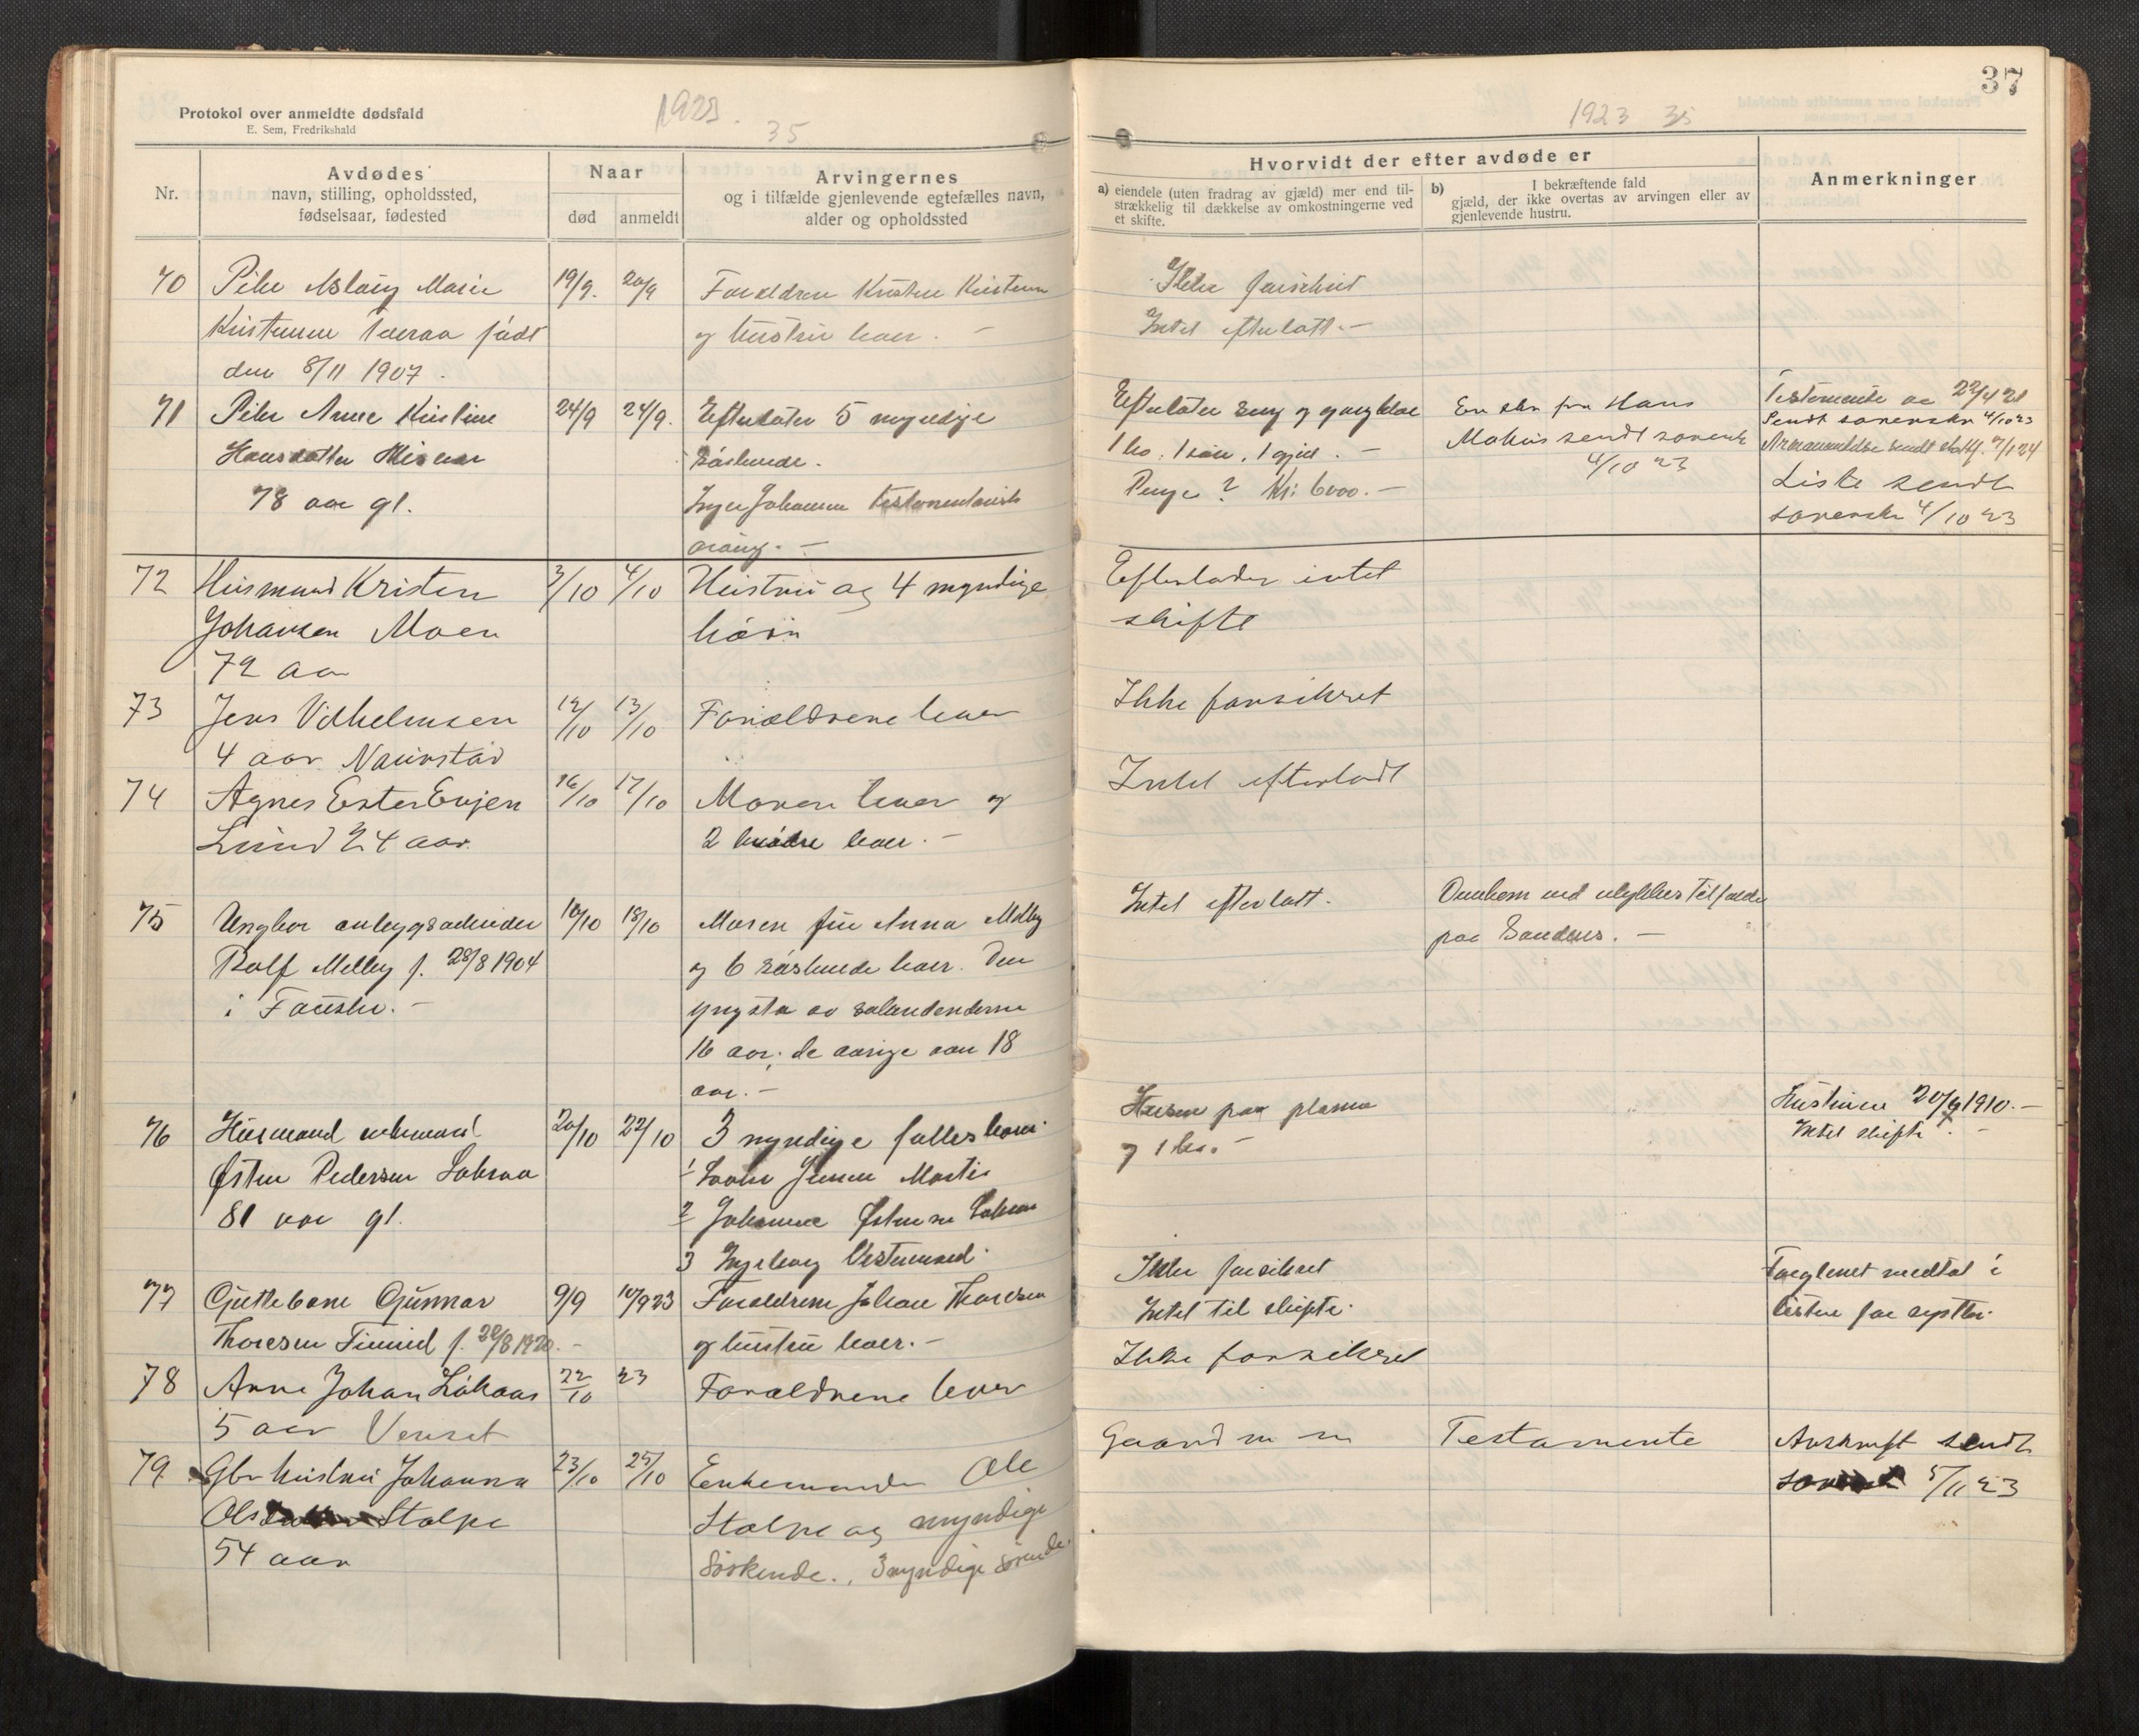 Protokol over anmeldte dødsfald
E. Sem, Fredrikshald
1923.
35
Nr.
Avdødes
navn, stilling, opholdssted,
fødselsaar, fødested
Naar
død
anmeldt
Arvingernes
og i tilfælde gjenlevende egtefælles navn,
alder og opholdssted
70 Pike Aslaug Marie 19/9. 20/9 Forældrene Kristen Kristensen
født og hustru lever. -
den 8/11 1907.
71 Pike Anne Kristine 24/9 24/9. Efterlater 5 myndige
Hansdatter søskende.
78 aar gl. Inger Johansen testamentarisk
arving. -
72 Husmand Kristen 3/10 4/10 Hustru og 4 myndige
Johansen Moen børn
72 aar
73 Jens Vilhelmsen 12/10 13/10 Forældrene lever
4 aar Naurstad
74 Agnes Ester Evjen 16/10 17/10 Moren lever og
Lund 24 aar. 2 brødre lever. -
75 Ungkar anlægsarbeider 10/10 18/10 Moren fru Anna Melby
Rolf Melby f. 28/8 1904 og 6 søskende lever. Den
i Fauske. - yngste av
16 aar, de øvrige over 18
aar. -
76 Husmand enkemand 20/10 22/10 3 myndige fellesbarn
Østen Pedersen Løkaas 1
81 aar gl. 2 Johanne Østensen
3 Ingeborg
77 Guttebarn Gunnar 9/9 10/9 23 Forældrene Johan Thoresen
Thoresen f. 20/8 1920. - og hustru lever. -
78 Arne Johan Løkaas 22/10 23 Forældrene lever
5 aar Venset
79 Gbr hustru Johanna 23/10 25/10 Enkemand Ole
Stolpe Stolpe og myndige
54 aar Søskende., 3 myndige
37
1923 35
Hvorvidt der efter avdøde er
a) eiendele (uten fradrag av gjæld) mer end til-
strækkelig til dækkelse av omkostningerne ved
et skifte.
b) I bekræftende fald
gjæld, der ikke overtas av arvingen eller av
gjenlevende hustru.
Anmerkninger
Ikke forsikret
Intet efterlatt. -
Efterlater seng og gangklær En skr fra Hans Testamente av 22/4 21
1 ko, 1 sau, 1 gjed. - sendt sorenskr Sendt sorenskr 4/10 23
4/10 23
Penge ? Kr: 6000. - Liste sendt
sorenskr 4/10 23
Efterlader intet
skifte
Ikke forsikret
Intet efterladt
Intet efterlatt. Omkom ved ulykkestilfælde
paa -
Husene paa plassen Hustruen 1910. -
og 1 ko. - Intet skifte. -
Ikke forsikret Forglemt medtat i
Intet til skifte. listen for septbr.
Ikke forsikret
Gaard m m Testamente Avskrift sendt
5/11 23